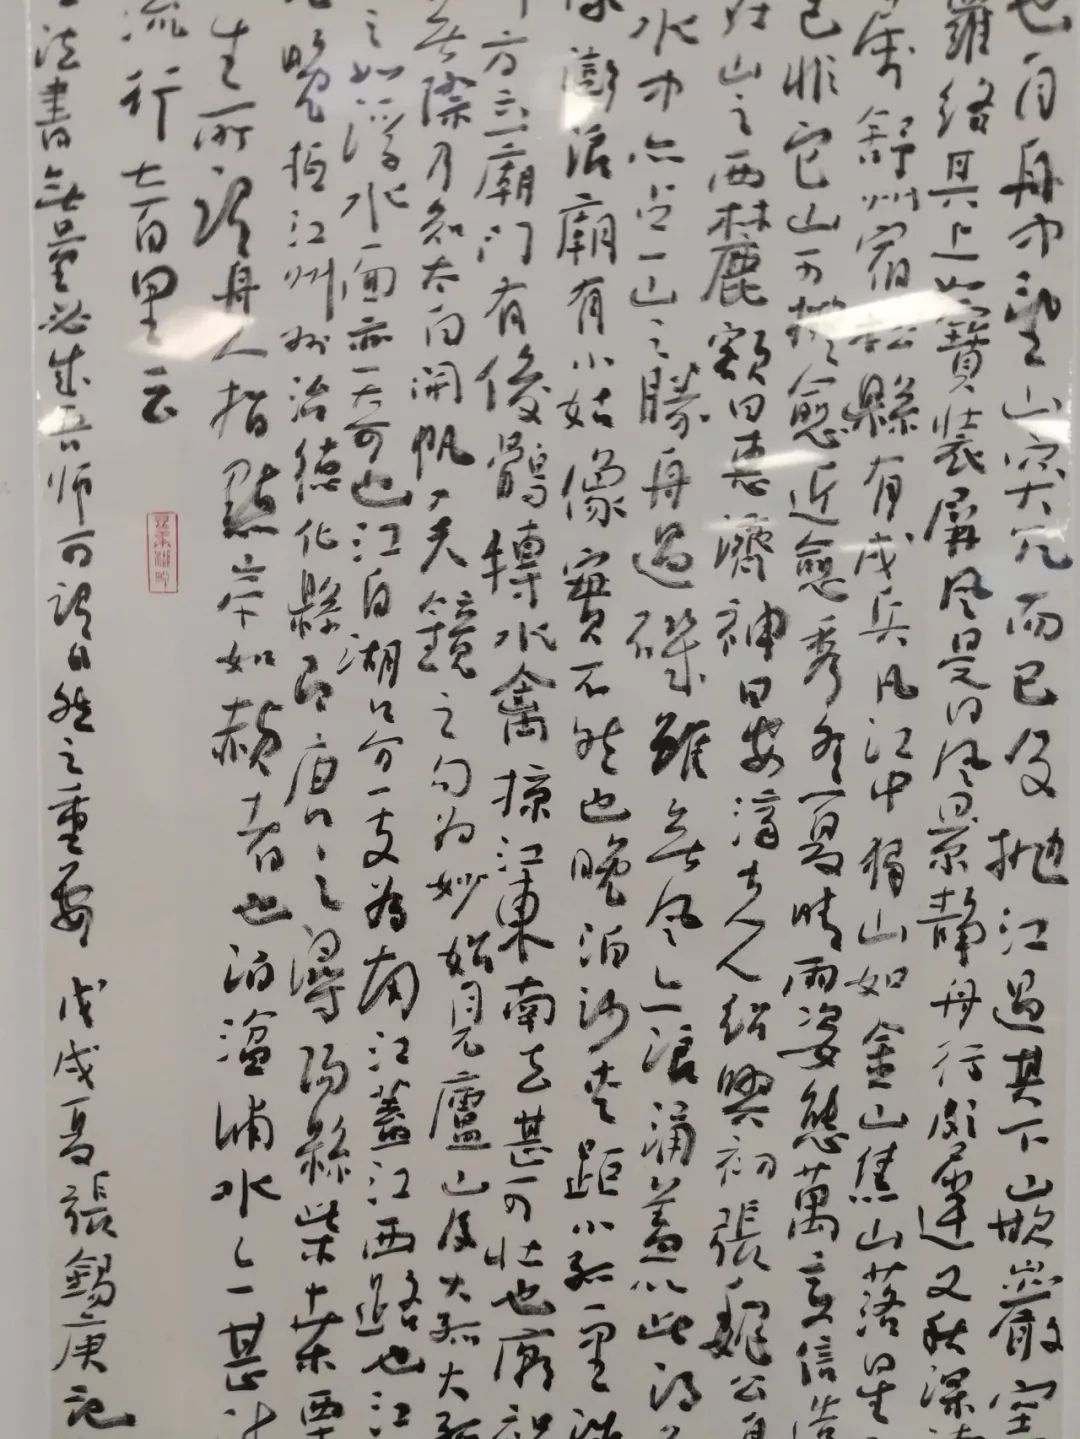 也自舟中望山突兀而已及抛江過其下山嵌巖空
羅絡其上如寶裝屏風是日風景静舟行頗遲又秋深
舒州宿松縣有戍兵凡江中獨山如金山焦山落星
已非它山可擬愈近愈秀冬夏晴雨姿態萬
在山之西林麓額曰惠濟神曰安濟夫人紹興初張魏公自
水中亦占一山之勝舟過磯雖無風亦浪涌蓋以此得
澎浪廟有小姑像實不然也晚泊沙夾距小孤一里
方立廟門有俊鶻搏水禽掠江東南去甚可壯也廟祝
無際乃知太白開帆入天鏡之句為妙始見廬山及大孤大
之如浮水面亦一奇也江自湖口分一支為南江蓋江西路也江
晚抵江州州治德化縣即唐之潯陽縣柴桑栗
生所謂舟人指點岸如赬者也泊湓浦水亦甚
流行七百里云
法書無量必造吾師可謂自然之重要 戊戌夏張錫庚記